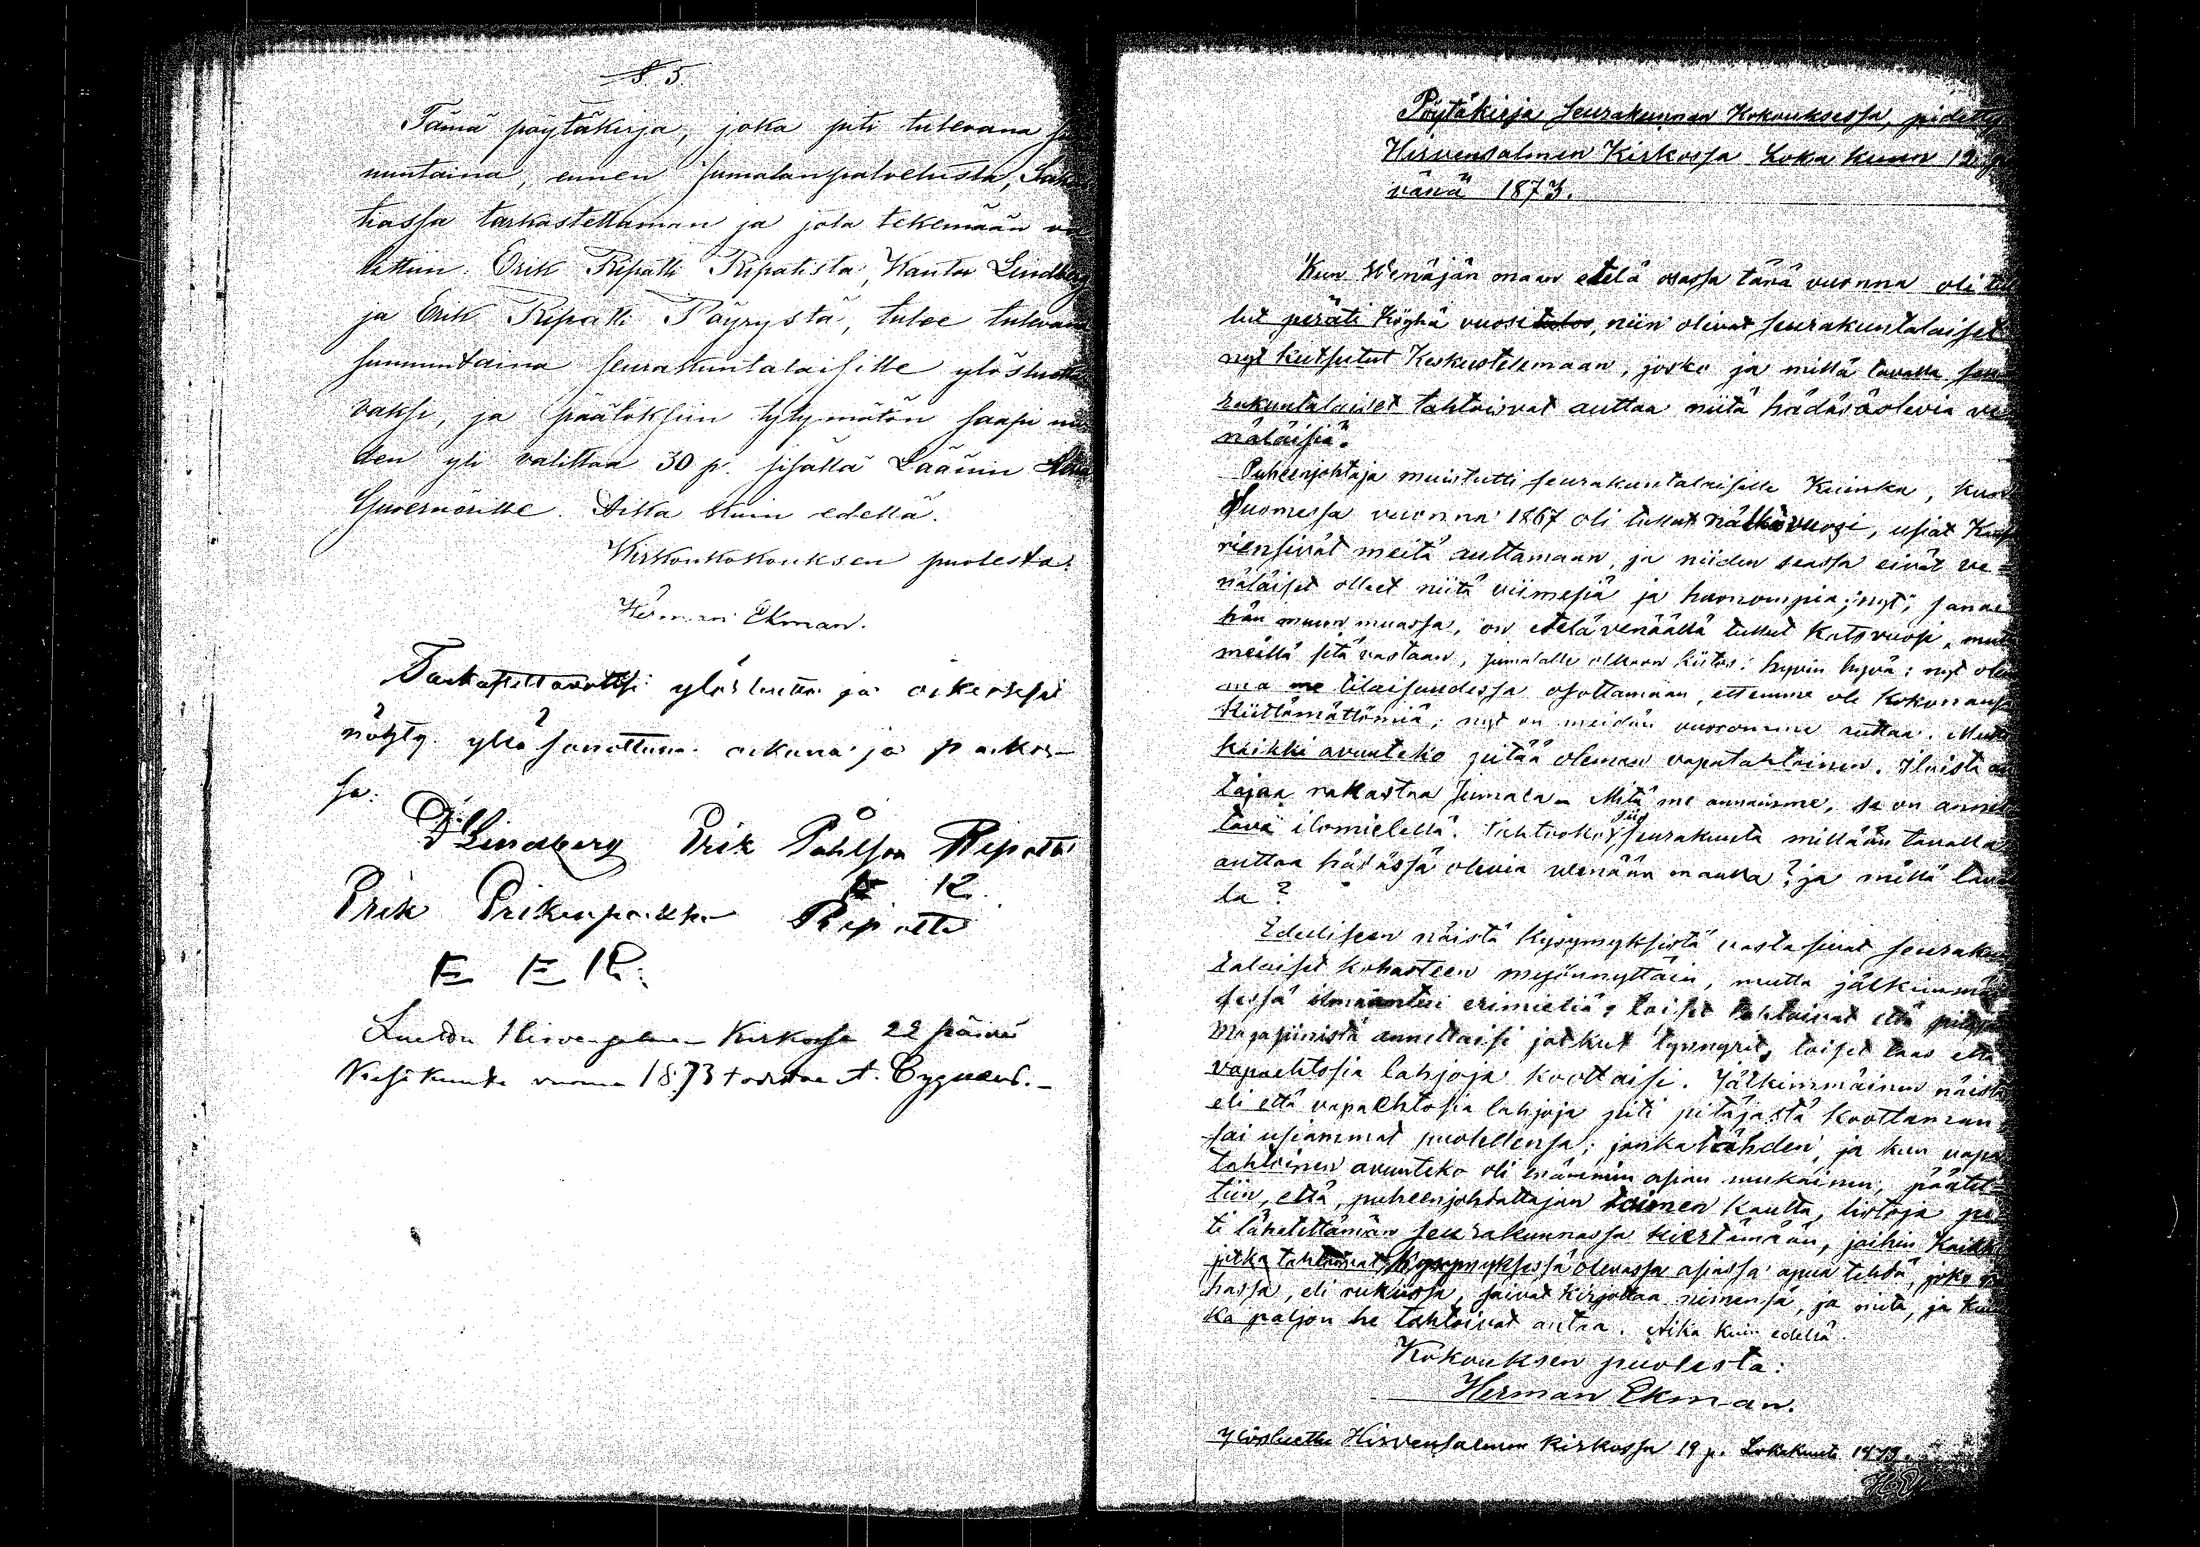 § 5.
Tämä pöytäkirja, joka piti tulevana su
nuntaina, ennen Jumalanpalvelusta, Sak
tiassa tarkastettaman ja jota tekemään va
littiin Erik Ripatti Ripatista, Kanttor Lindberg
ja Erik Ripatti Pöyrystä, tulee tulevana
sunnuntaina seurakuntalaisille ylösluetta
vaksi, ja päätöksiin tytymätön saapi nii
den yli valittaa 30 p. sisällä Läänin
Guvernörille. Aika kuin edellä.
Kirkonkokouksen puolesta:
Herman Ekman.
Tarkastettavaksi ylösluettu ja oikeaksi
nähty yllä sanottuna aikana ja paikas-
sa.
D Lindberg Erik Påhlson Ripatti
E R
Erik Erikinpoika Ripatti
E E R.
Luettu Hirvensalmen Kirkossa 22 päivä
Kesäkuuta vuonna 1873 todistaa A. Cygnaeus.-
Pöytäkirja Seurakunnan Kokouksessa, pidetty
Hirvensalmen Kirkossa Loka kuun 12 p
vänä 1873.
Kun Wenäjän maan etelä osassa tänä vuonna oli tul
lut peräti Köyhä vuosi tulos, niin olivat seurakuntalaiset
nyt kutsutut Keskustelemaan, josko ja millä tavalla seu
rakuntalaiset tahtoisivat auttaa niitä hädäsäolevia ve
näläisiä.
Puheenjohtaja muistutti seurakuntalaisille Kuinka, kun
Suomessa vuonna 1867 oli tullut nälkävuosi, usiat Kans
riensivät meitä auttamaan, ja niiden seassa eivät ve=
näläiset olleet niitä viimesiä ja huonompia; "nyt", sanoi
hän muun muassa, on etelävenäällä tullut Katovuosi, mutta
meillä sitä vastaan, Jumalalle olkoon kiitos! hyvin hyvä; nyt olem
ma me tilaisuudessa osottamaan, ettemme ole kokonansa
Kiittämättömiä; nyt on meidän vuoromme auttaa. Mutta
kaikki avunteko pitää oleman vapatahtoinen. Iloista an
tajaa rakastaa Jumala - Mitä me annamme, se on annet
tava ilomielellä. Tahtooko siis seurakunta millään tavalla
auttaa hädässä olevia wenään maalla? ja millä tava
la?
Edelliseen näistä Kysymyksistä vastasivat seurakun
talaiset kohasteen myönnyttäin, mutta jälkimmäi
sessä ilmaantui erimieliä; toiset tahtoivat että pitäjän
Magasiinista annettaisi jotkut tynnyrit, toiset taas että
vapaehtosia lahjoja koottaisi. Jälkimmäinen näistä
eli että vapaehtosia lahjoja piti pitäjästä koottaman
sai usiammat puolellensa; jonka tähden, ja kun vapa
tahtoinen avunteko oli enämmin asian mukainen, päätet=
tiin, että, puheenjohdattajan toimen kautta, listoja pi
ti lähetettämän seurakunnassa kiertämään, joihin Kaikki
jotka tahtoivat Kysymyksessä olevassa asiassa apua tehdä, joko ra
hassa, eli rukiissa, saivat kirjottaa nimensä, ja mitä, ja kui
ka paljon he tahtoivat antaa. Aika kuin edellä.
Kokouksen puolesta:
Herman Ekman.
Ylösluettu Hirvensalmen kirkossa 19 p. Lokakuuta 1873.